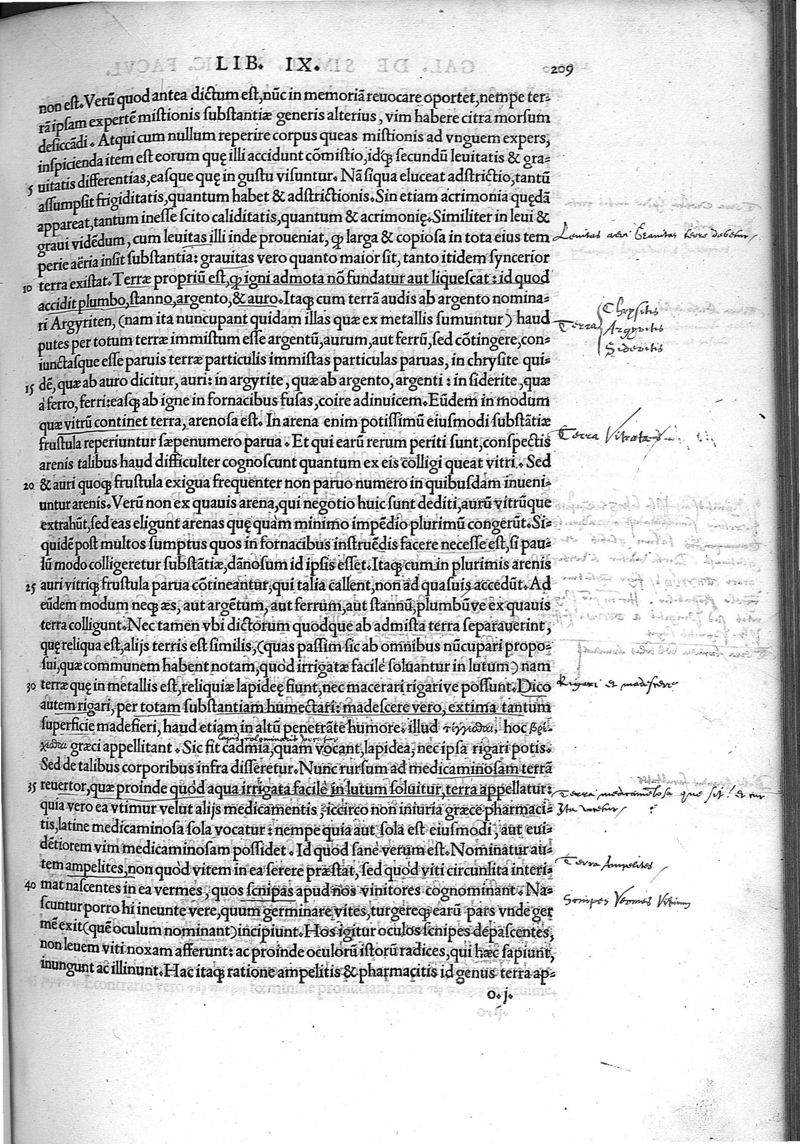 LIB. IX.
209
non est. Verũ quod antea dictum est, nũc in memoriã reuocare oportet, nempe ter-
rã ipsam expertẽ mistionis substantiæ generis alterius, vim habere citra morsum
desiccãdi. Atqui cum nullum reperire corpus queas mistionis ad vnguem expers,
inspicienda item est eorum quę illi accidunt cõmistio, idq́ȝ secundũ leuitatis & gra-
5 uitatis differentias, easque quę in gustu visuntur. Nã siqua eluceat adstrictio, tantũ
assumpsit frigiditatis, quantum habet & adstrictionis. Sin etiam acrimonia quędã
appareat, tantum inesse scito caliditatis, quantum & acrimonię. Similiter in leui &
graui vidẽdum, cum leuitas illi inde proueniat, q̃ larga & copiosa in tota eius tem
perie aëria insit substantia: grauitas vero quanto maior sit, tanto itidem syncerior
10 terra existat. Terræ propriũ est, q̃ igni admota nõ fundatur aut liquescat: id quod
accidit plumbo, stanno, argento, & auro. Itaq́ȝ cum terrã audis ab argento nomina-
ri Argyriten, (nam ita nuncupant quidam illas quæ ex metallis sumuntur) haud
putes per totum terræ immistum esse argentũ, aurum, aut ferrũ, sed cõtingere, con-
iunctasque esse paruis terræ particulis immistas particulas paruas, in chrysite qui-
15 dẽ, quæ ab auro dicitur, auri: in argyrite, quæ ab argento, argenti: in siderite, quæ
a ferro, ferri: easq́ȝ ab igne in fornacibus fusas, coire adinuicem. Eũdem in modum
quæ vitrũ continet terra, arenosa est. In arena enim potissimũ eiusmodi substãtiæ
frustula reperiuntur sæpenumero parua. Et qui earũ rerum periti sunt, conspectis
arenis talibus haud difficulter cognoscunt quantum ex eis colligi queat vitri. Sed
20 & auri quoq́ȝ frustula exigua frequenter non paruo numero in quibusdam inueni-
untur arenis. Verũ non ex quauis arena, qui negotio huic sunt dediti, aurũ vitrũque
extrahũt, sed eas eligunt arenas quę quàm minimo impẽdio plurimũ congerũt. Si-
quidẽ post multos sumptus quos in fornacibus instruẽdis facere necesse est, si pau-
lũ modo colligeretur substãtiæ, dãnosum id ipsis esset. Itaq́ȝ cum in plurimis arenis
25 auri vitriq́ȝ frustula parua cõtineantur, qui talia callent, non ad quasuis accedũt. Ad
eũdem modum neq́ȝ æs, aut argẽtum, aut ferrum, aut stannũ, plumbũve ex quauis
terra colligunt. Nec tamen vbi dictorum quodque ab admista terra separauerint,
quę reliqua est, alijs terris est similis, (quas passim sic ab omnibus nũcupari propo-
sui, quæ communem habent notam, quòd irrigatæ facilè soluantur in lutum) nam
30 terræ quę in metallis est, reliquiæ lapideę fiunt, nec macerari rigarive possunt. Dico
autem rigari, per totam substantiam humectari: madescere vero, extima tantum
superficie madefieri, haud etiam in altũ penetrãte humore. illud τέγγεσθαι, hoc βρέ-
χεσθαι græci appellitant. Sic fit cadmia, quam vocant, lapidea, nec ipsa rigari potis.
Sed de talibus corporibus infra disseretur. Nunc rursum ad medicaminosam terrã
35 reuertor, quæ proinde quòd aqua irrigata facilè in lutum soluitur, terra appellatur:
quia vero ea vtimur velut alijs medicamentis, iccirco non iniuria græce pharmaci-
tis, latine medicaminosa sola vocatur: nempe quia aut sola est eiusmodi, aut eui-
dẽtiorem vim medicaminosam possidet. Id quod sane verum est. Nominatur au-
tem ampelites, non quòd vitem in ea serere præstat, sed quòd viti circunlita interi-
40 mat nascentes in ea vermes, quos scnipas apud nos vinitores cognominant. Na-
scuntur porro hi ineunte vere, quum germinare vites, turgereq́ȝ earũ pars vnde ger
mẽ exit (quẽ oculum nominant) incipiunt. Hos igitur oculos scnipes depascentes,
non leuem viti noxam afferunt: ac proinde oculorũ istorũ radices, qui hæc sapiunt,
inungunt ac illinunt. Hac itaq́ȝ ratione ampelitis & pharmacitis id genus terra ap-
O. j.
Leuitas aeri Grauitas terre dabetur
Terra
Chrysitis
Argyritis
Sideritis
Terra Vitrata
Rigari et madescere
Terra medicaminosa que sit? et cur
ita vocetur
Terra Ampelites
Scnipes Vermes Vitium